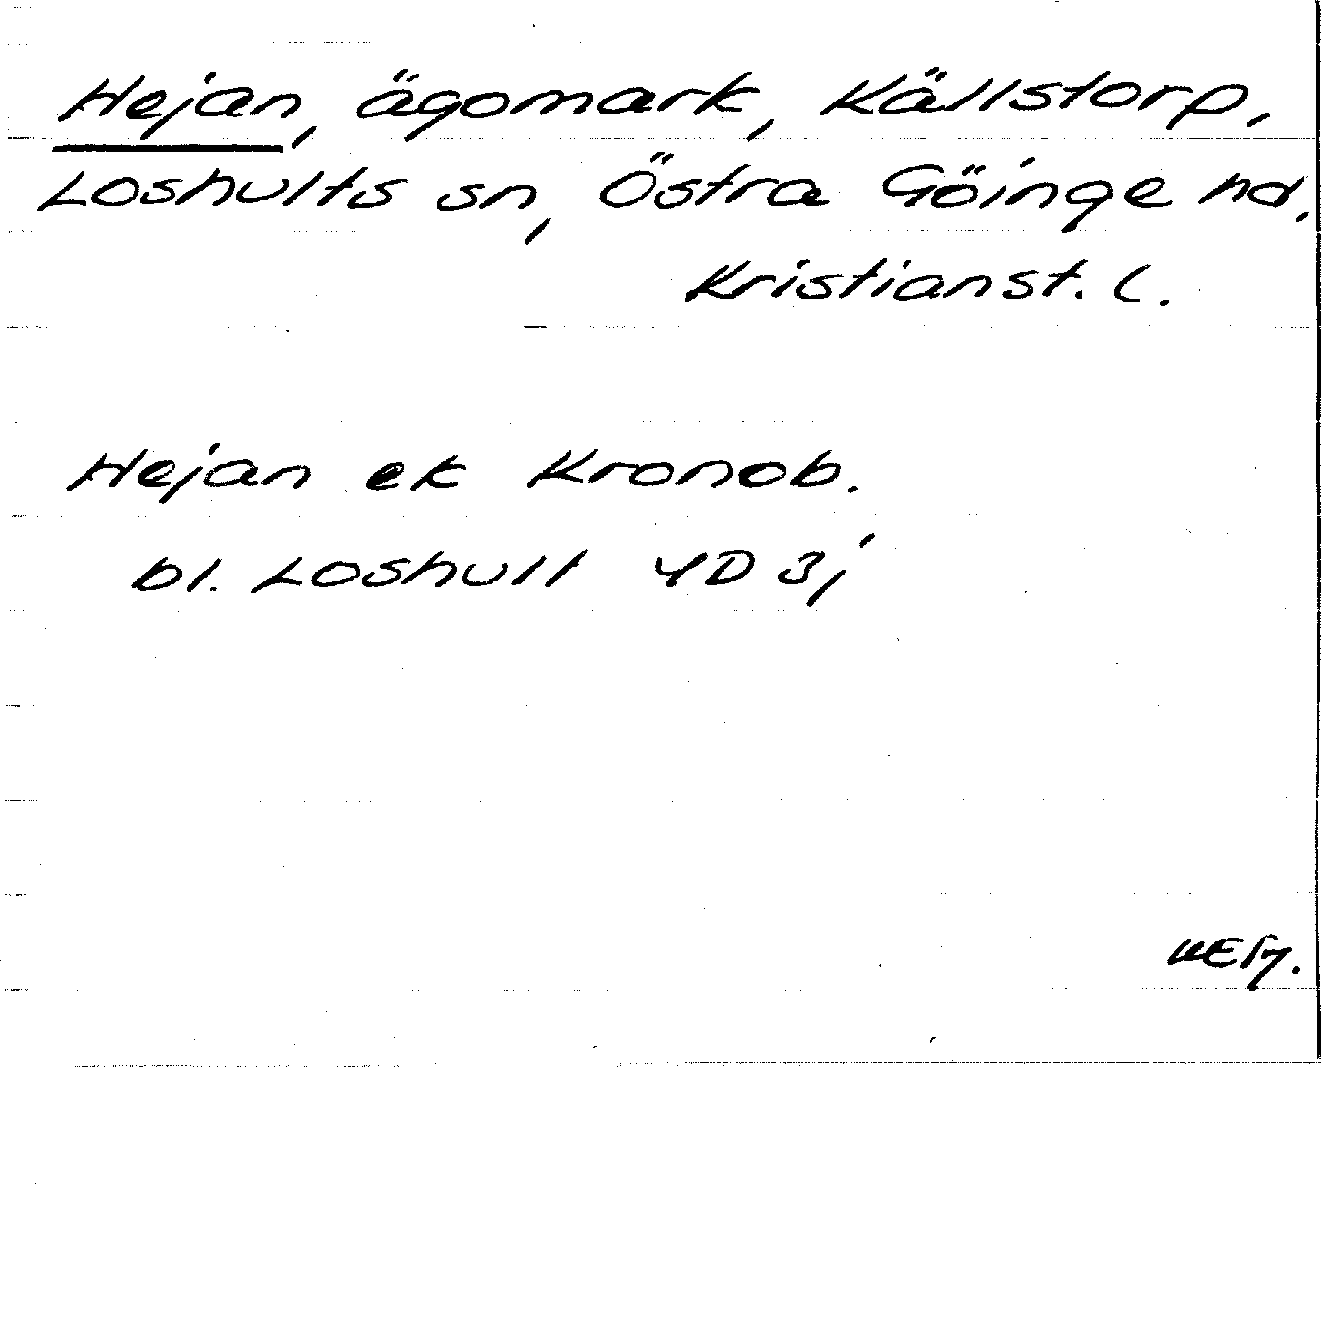 Hejan, ägomark, Källstorp,
Loshults sn, Östra Göinge hd,
Kristianst. l.
Hejan ek Kronob.
bl. Loshult 4D 3j